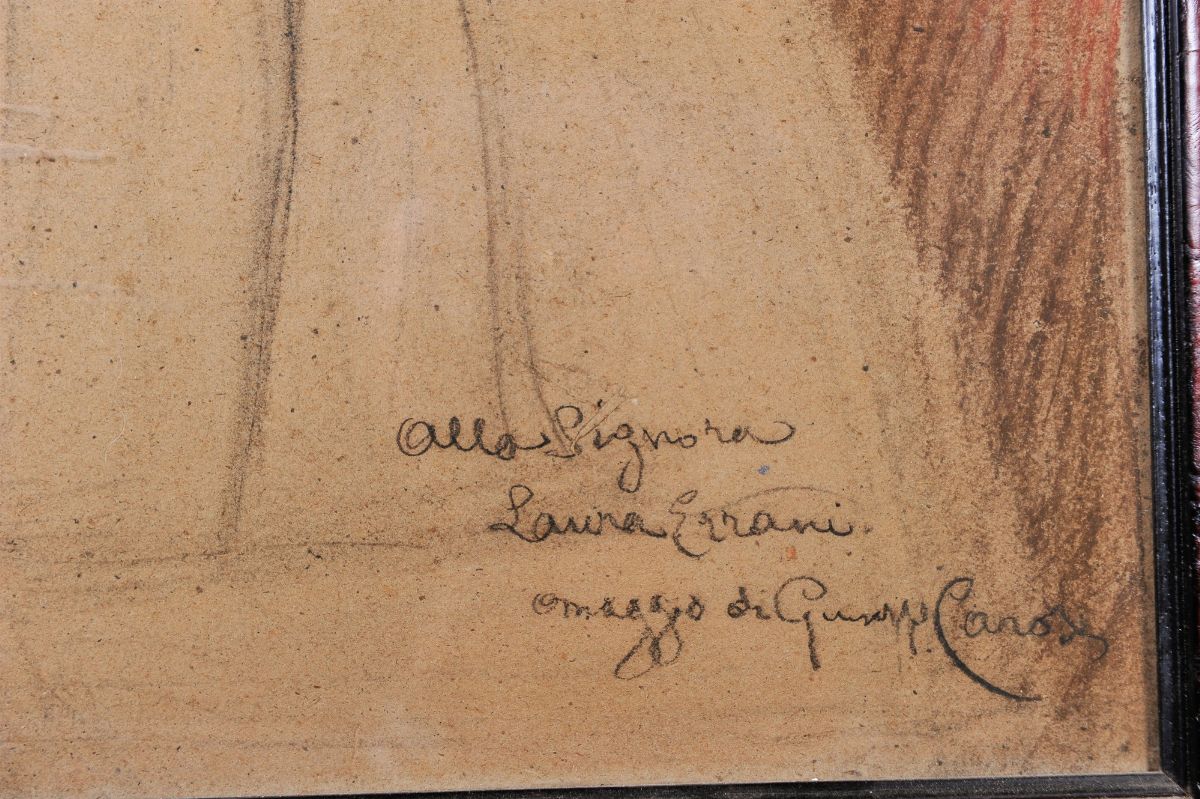 Alla Signora
Laura Errani.
omaggio di Giuseppe